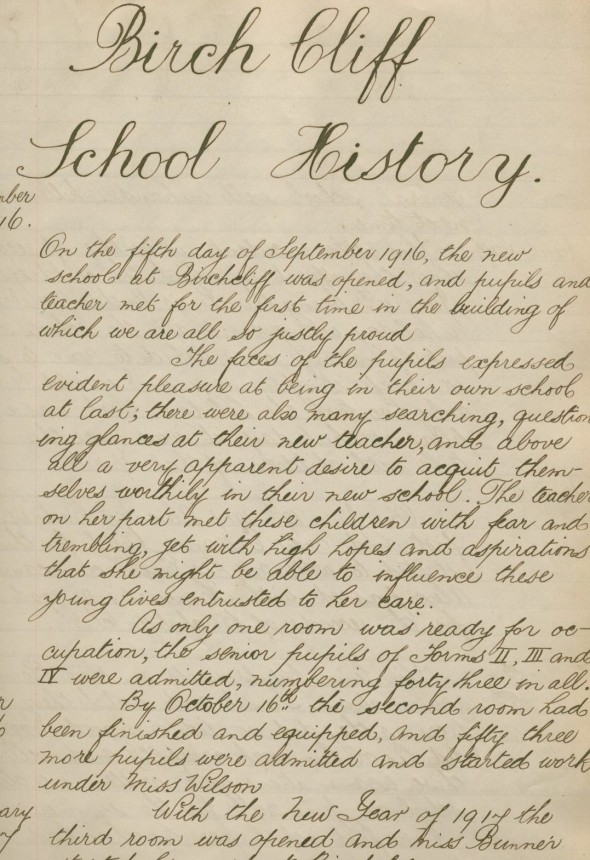 Birch Cliff
School History.
mber
16.
On the fifth day of September 1916, the new
school at Birchcliff was opened, and pupils and
teacher met for the first time in the building of
which we are all so justly proud
The faces of the pupils expressed
evident pleasure at being in their own school
at last; there were also many searching, question
ing glances at their new teacher, and above
all a very apparent desire to acquit them-
selves worthily in their new school. The teacher
on her part met these children with fear and
trembling, yet with high hopes and aspirations
that she might be able to influence these
young lives entrusted to her care.
As only one room was ready for oc-
cupation, the senior pupils of Forms II, III and
IV were admitted, numbering forty three in all.
By October 16th the second room had
been finished and equipped, and fifty three
more pupils were admitted and started work
under Miss Wilson
ary
7
With the New Year of 1917 the
third room was opened and Miss Bunner